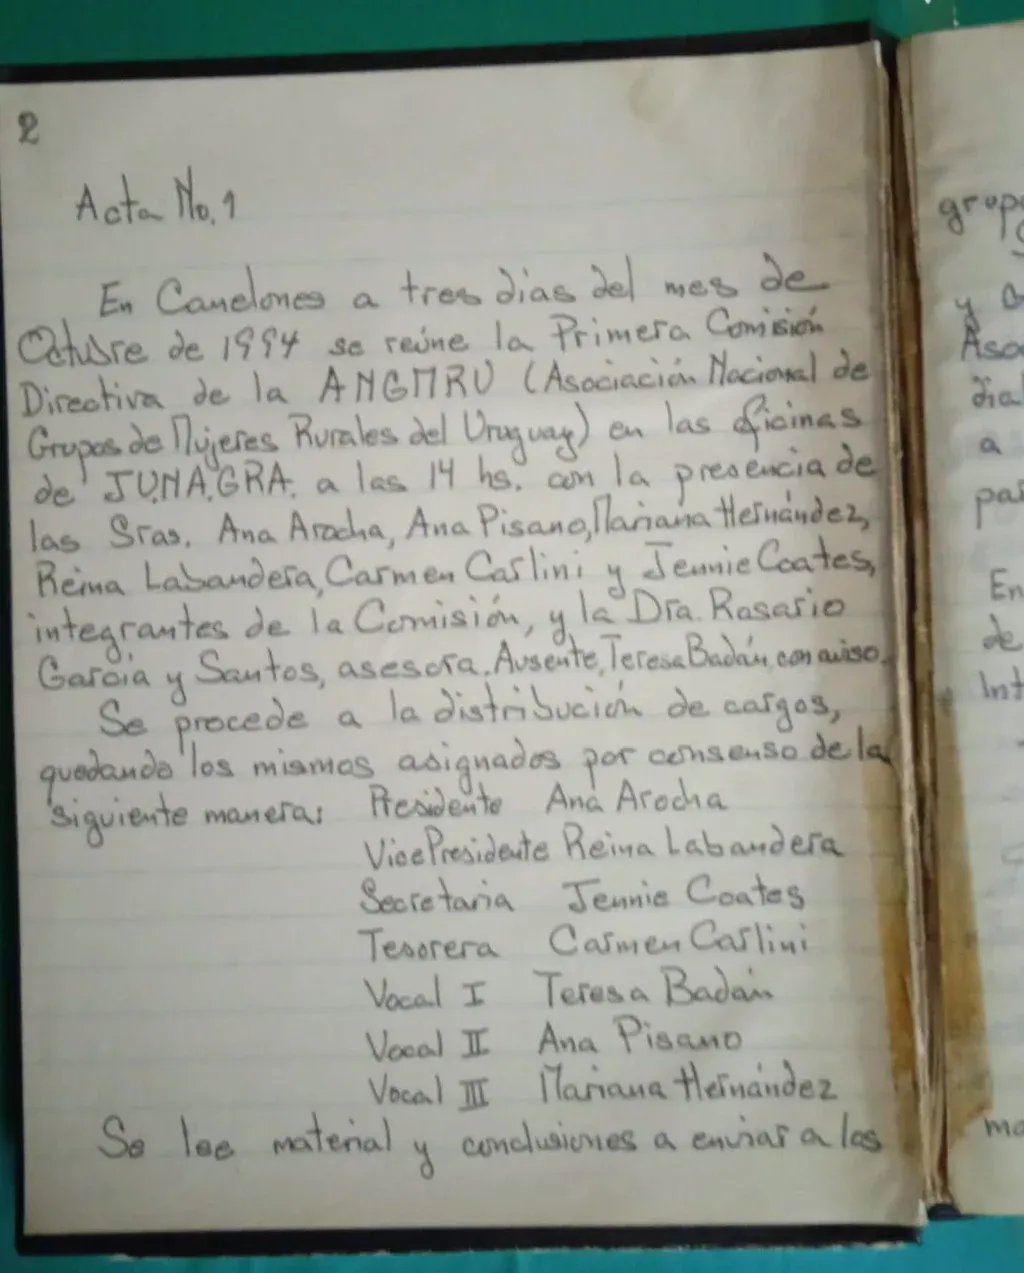 2
Acta No. 1
En Canelones a tres dias del mes de
Octubre de 1994 se reúne la Primera Comisión
Directiva de la ANGMRU (Asociación Nacional de
Grupos de Mujeres Rurales del Uruguay) en las oficinas
de JU.NA.GRA. a las 14 hs. con la presencia de
las Sras. Ana Arocha, Ana Pisano, Mariana Hernández,
Reina Labandera, Carmen Carlini y Jennie Coates,
integrantes de la Comisión, y la Dra. Rosario
García y Santos, asesora. Ausente, Teresa Badán, con aviso.
Se procede a la distribución de cargos,
quedando los mismos asignados por consenso de la
siguiente manera: Presidente Ana Arocha
VicePresidente Reina Labandera
Secretaria Jennie Coates
Tesorera Carmen Carlini
Vocal I Teresa Badán
Vocal II Ana Pisano
Vocal III Mariana Hernández
Se lee material y conclusiones a enviar a las
grup
y
Aso
dia
a
En
de
Int